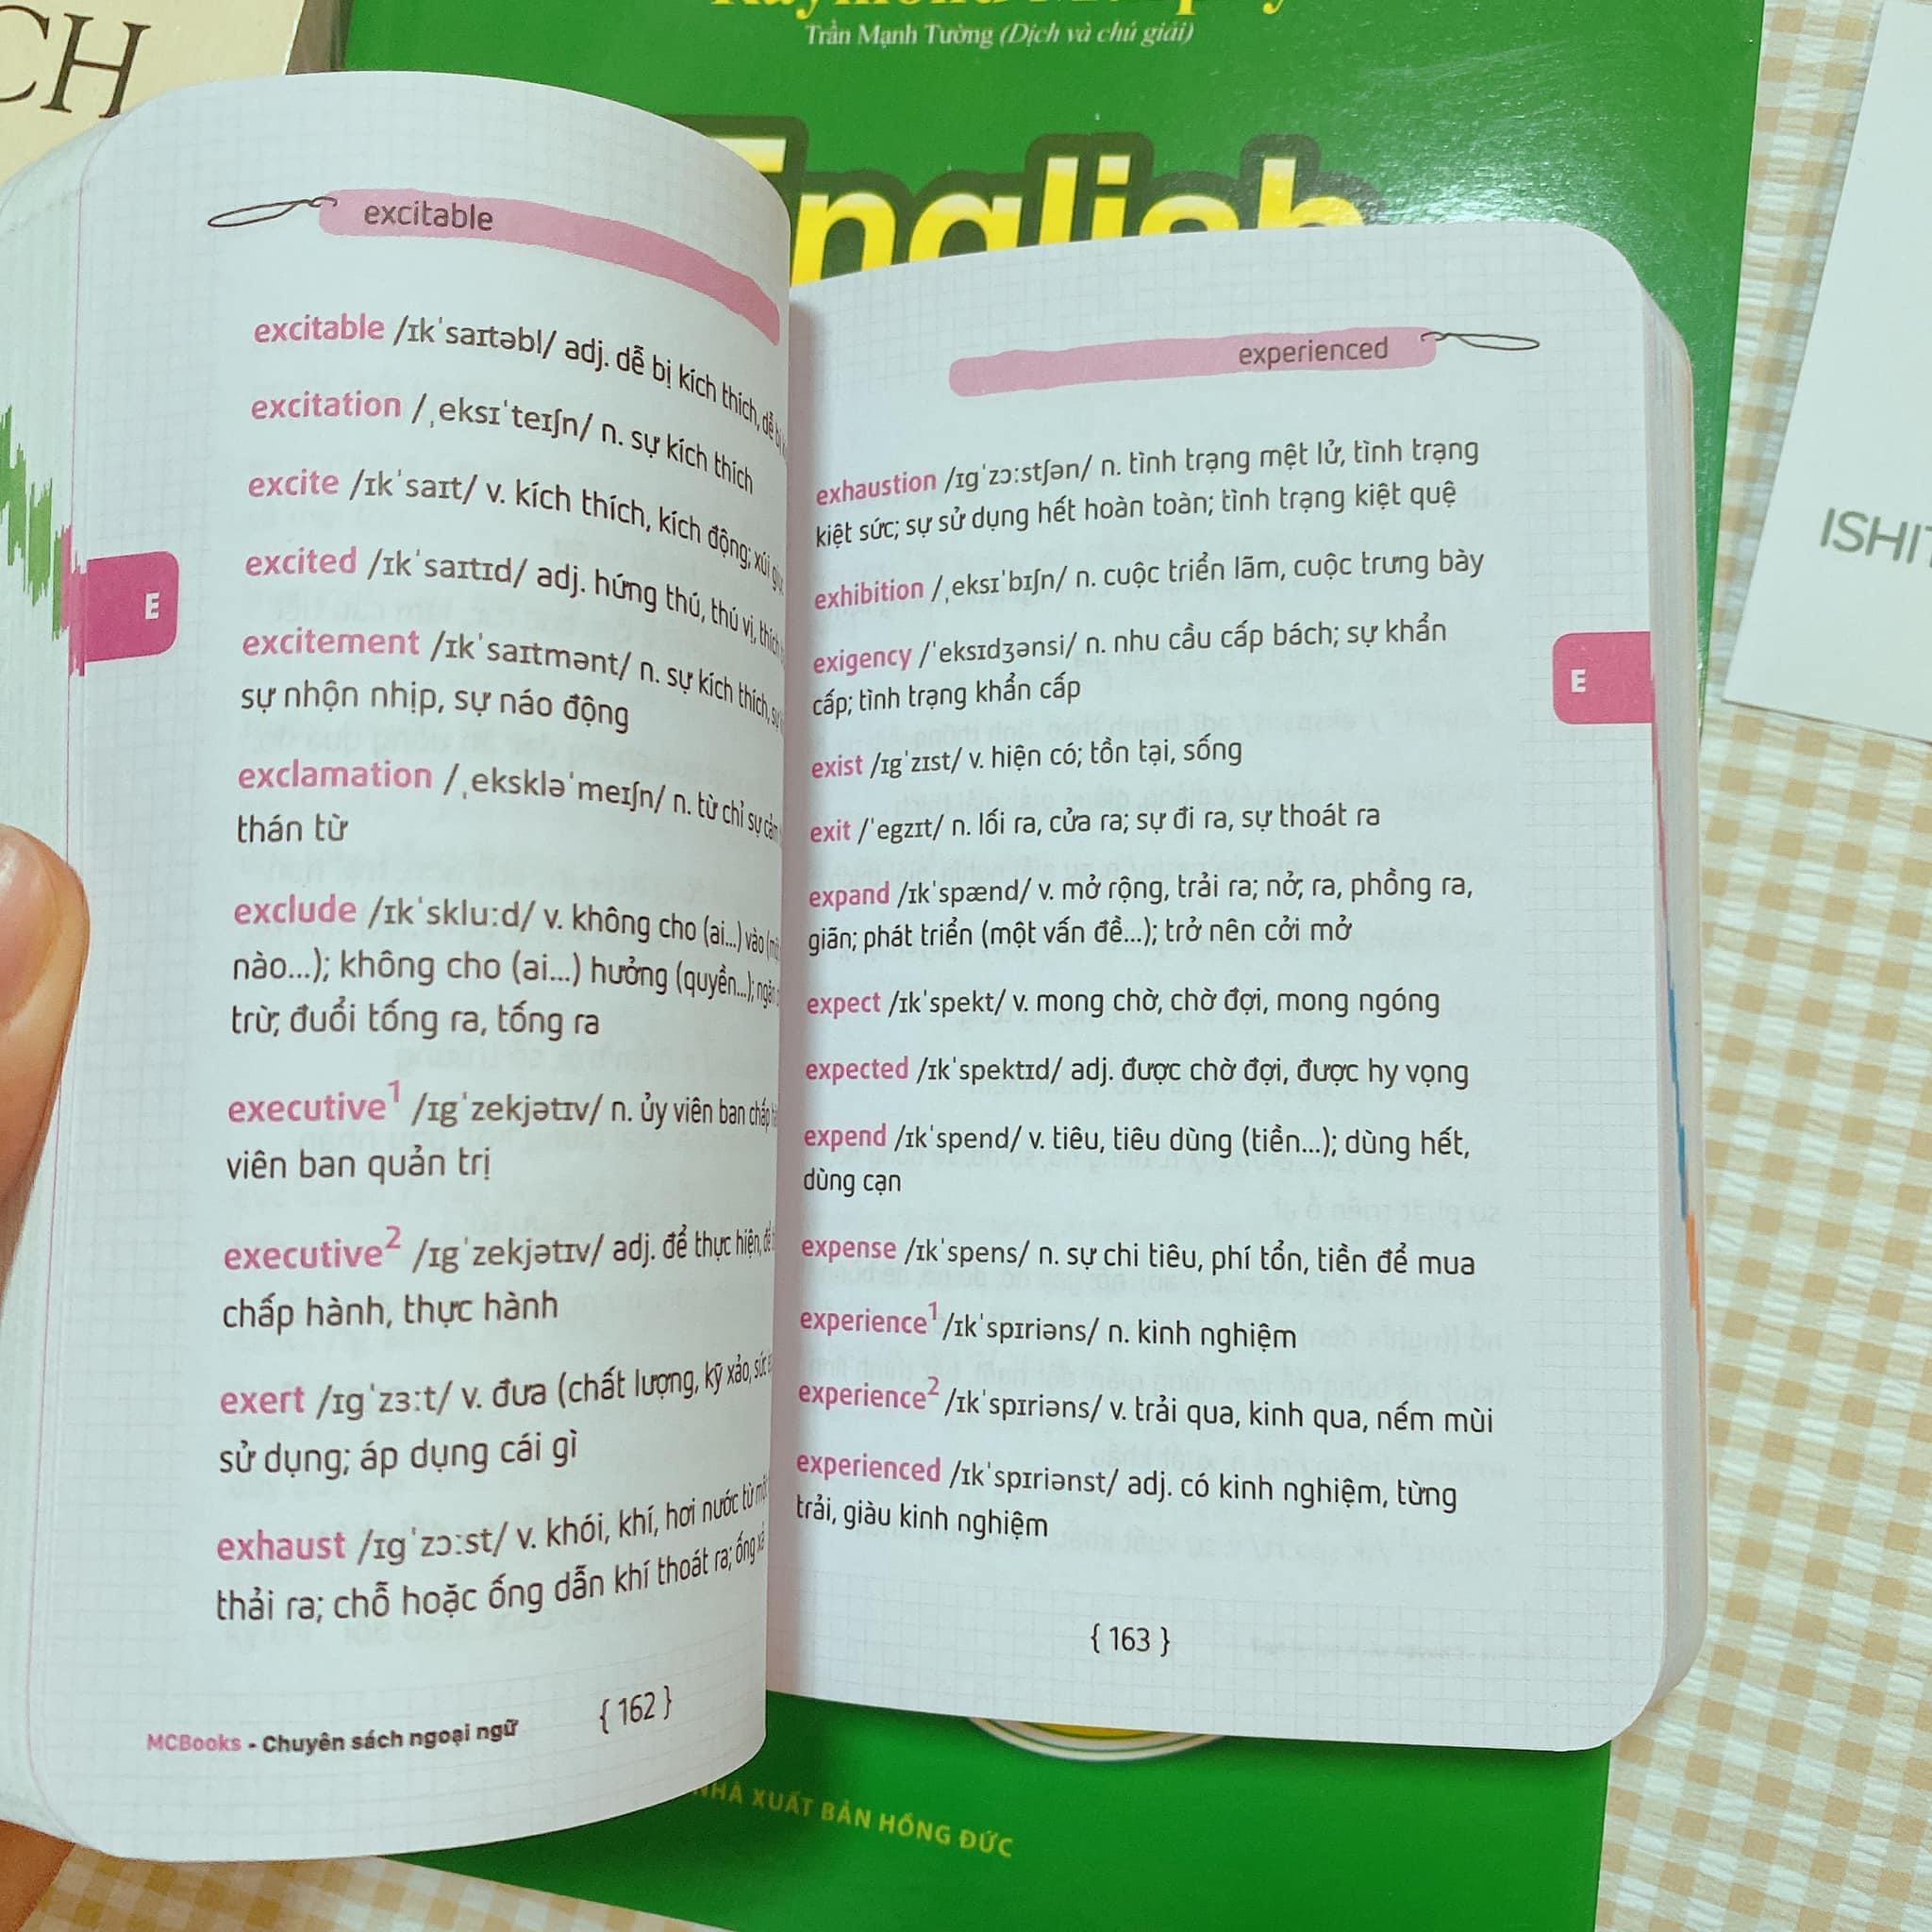 CH
Trần Mạnh Tường (Dịch và chú giải)
English
excitable
excitable /ɪkˈsaɪtəbl/ adj. dễ bị kích thích, dễ bị
excitation /ˌeksɪˈteɪʃn/ n. sự kích thích
excite /ɪkˈsaɪt/ v. kích thích, kích động; xúi
excited /ɪkˈsaɪtɪd/ adj. hứng thú, thú vị, thích
excitement /ɪkˈsaɪtmənt/ n. sự kích thích, sự
sự nhộn nhịp, sự náo động
exclamation /ˌekskləˈmeɪʃn/ n. từ chỉ sự cảm
thán từ
exclude /ɪkˈskluːd/ v. không cho (ai...) vào
nào...); không cho (ai...) hưởng (quyền...); ngăn
trừ; đuổi tống ra, tống ra
executive1 /ɪgˈzekjətɪv/ n. ủy viên ban chấp
viên ban quản trị
executive2 /ɪgˈzekjətɪv/ adj. để thực hiện, để
chấp hành, thực hành
exert /ɪgˈzɜːt/ v. đưa (chất lượng, kỹ xảo, sức
sử dụng; áp dụng cái gì
exhaust /ɪgˈzɔːst/ v. khói, khí, hơi nước từ
thải ra; chỗ hoặc ống dẫn khí thoát ra; ống xả
E
{ 162 }
MCBooks - Chuyên sách ngoại ngữ
experienced
exhaustion /ɪgˈzɔːstʃən/ n. tình trạng mệt lử, tình trạng
kiệt sức; sự sử dụng hết hoàn toàn; tình trạng kiệt quệ
exhibition /ˌeksɪˈbɪʃn/ n. cuộc triển lãm, cuộc trưng bày
exigency /ˈeksɪdʒənsi/ n. nhu cầu cấp bách; sự khẩn
cấp; tình trạng khẩn cấp
exist /ɪgˈzɪst/ v. hiện có; tồn tại, sống
exit /ˈegzɪt/ n. lối ra, cửa ra; sự đi ra, sự thoát ra
expand /ɪkˈspænd/ v. mở rộng, trải ra; nở; ra, phồng ra,
giãn; phát triển (một vấn đề...); trở nên cởi mở
expect /ɪkˈspekt/ v. mong chờ, chờ đợi, mong ngóng
expected /ɪkˈspektɪd/ adj. được chờ đợi, được hy vọng
expend /ɪkˈspend/ v. tiêu, tiêu dùng (tiền...); dùng hết,
dùng cạn
expense /ɪkˈspens/ n. sự chi tiêu, phí tổn, tiền để mua
experience1 /ɪkˈspɪriəns/ n. kinh nghiệm
experience2 /ɪkˈspɪriəns/ v. trải qua, kinh qua, nếm mùi
experienced /ɪkˈspɪriənst/ adj. có kinh nghiệm, từng
trải, giàu kinh nghiệm
E
{ 163 }
NHÀ XUẤT BẢN HỒNG ĐỨC